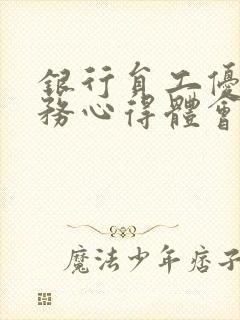 銀行員工優
務心得體會
魔法少年痞子